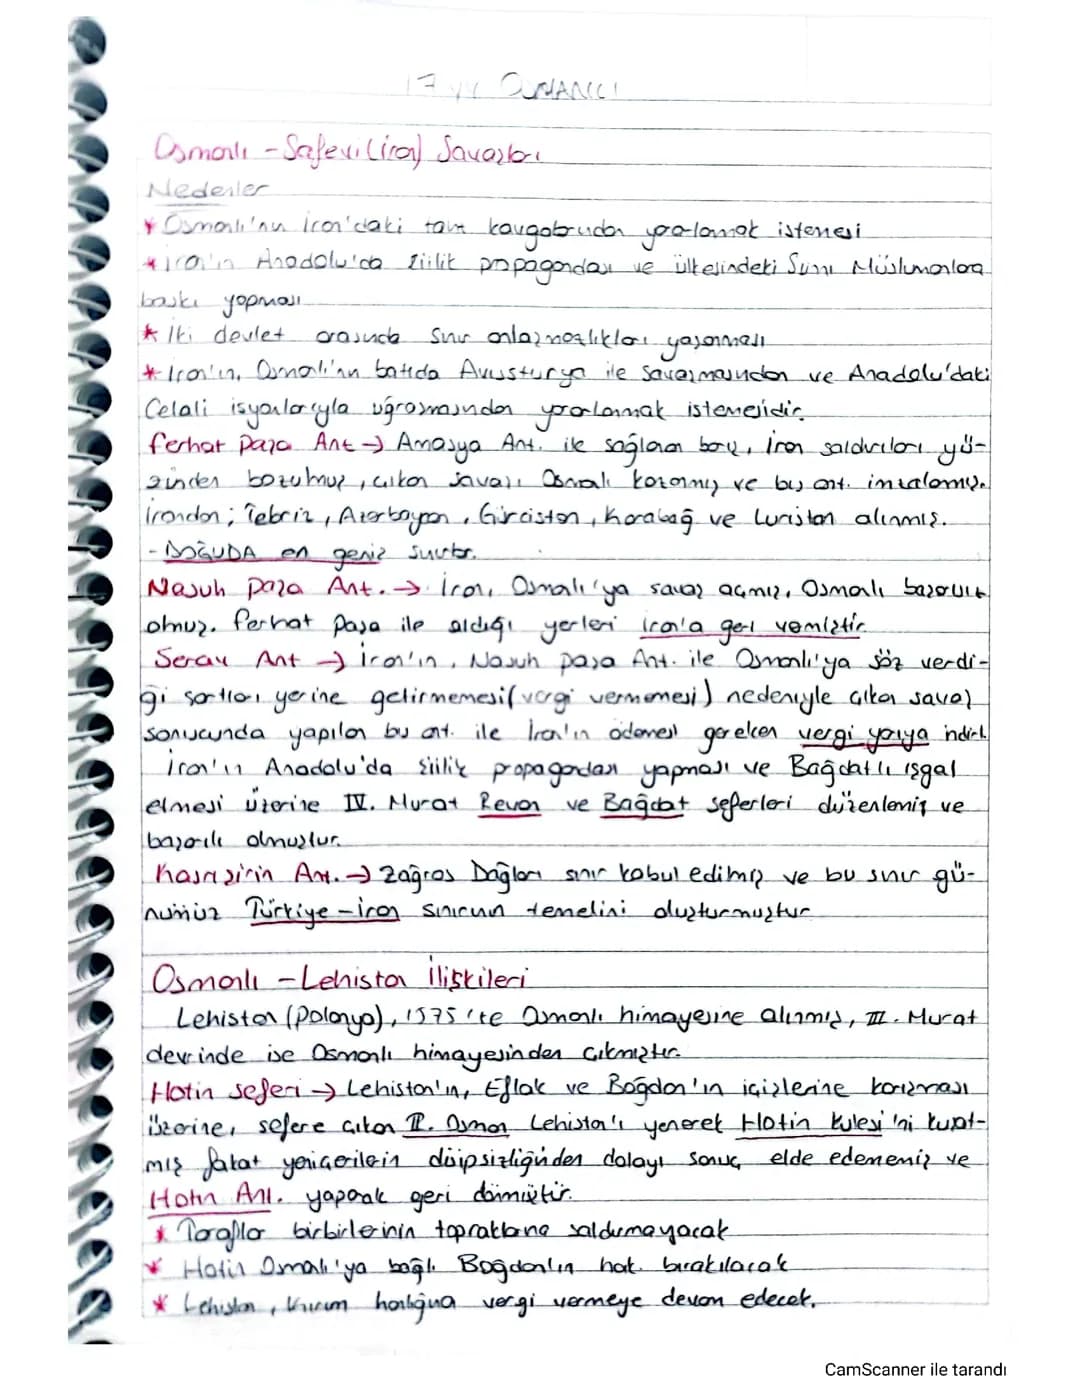 17. yy OSMANLI
Osmanlı - Safevi (iran) Savaşları
Nedenler
* Osmanlı'nın İran'daki taht kavgalarından yararlanmak istemesi
* İran'ın Anadolu'da şiilik propagandası ve ülkesindeki Sunni Müslümanlara
baskı yapması
* İki devlet arasında sınır anlaşmazlıkları yaşanması
* İran'ın, Osmanlı'nın batıda Avusturya ile savaşmasından ve Anadolu'daki
Celali isyanlarıyla uğraşmasından yararlanmak istemesidir.
Ferhat paşa Ant → Amasya Ant. ile sağlanan barış, İran saldırıları yü-
zünden bozulmuş, çıkan savaşı Osmanlı kazanmış ve bu ant. imzalamış.
İrandan; Tebriz, Azerbaycan, Gürcistan, Karabağ ve Luristan alınmış.
- DOĞUDA en geniş sınırlar.
Nasuh paşa Ant. → İran, Osmanlı'ya savaş açmış, Osmanlı başarısız
olmuş. Ferhat paşa ile aldığı yerleri İran'a geri vermiştir.
Serav Ant → İran'ın, Nasuh paşa Ant. ile Osmanlı'ya söz verdi-
ği şartları yerine getirmemesi (vergi vermemesi) nedeniyle çıkan savaş
sonucunda yapılan bu ant. ile İran'ın ödemesi gereken vergi yarıya indiril.
İran'ın Anadolu'da şiilik propagandası yapması ve Bağdat'ı işgal
etmesi üzerine IV. Murat Revan ve Bağdat seferleri düzenlemiş ve
başarılı olmuştur.
Kasrışirin Ant. → Zağros Dağları sınır kabul edilmiş ve bu sınır gü-
nümüz Türkiye - İran sınırının temelini oluşturmuştur
Osmanlı - Lehistan İlişkileri
Lehistan (Polonya), 1575'te Osmanlı himayesine alınmış, III. Murat
devrinde ise Osmanlı himayesinden çıkmıştır.
Hotin seferi → Lehistan'ın, Eflak ve Boğdan'ın içişlerine karışması
üzerine, sefere çıkan II. Osman Lehistan'ı yenerek Hotin kulesi'ni kuşat-
mış fakat yeniçerilerin disipsizliğinden dolayı sonuç elde edememiş ve
Hotin Ant. yaparak geri dönmüştür.
* Taraflar birbirlerinin topraklarına saldırmayacak
* Hotin Osmanlı'ya bağlı Boğdan'ın hak. bırakılacak
* Lehistan, Kırım hanlığına vergi vermeye devam edecek.
CamScanner ile tarandı